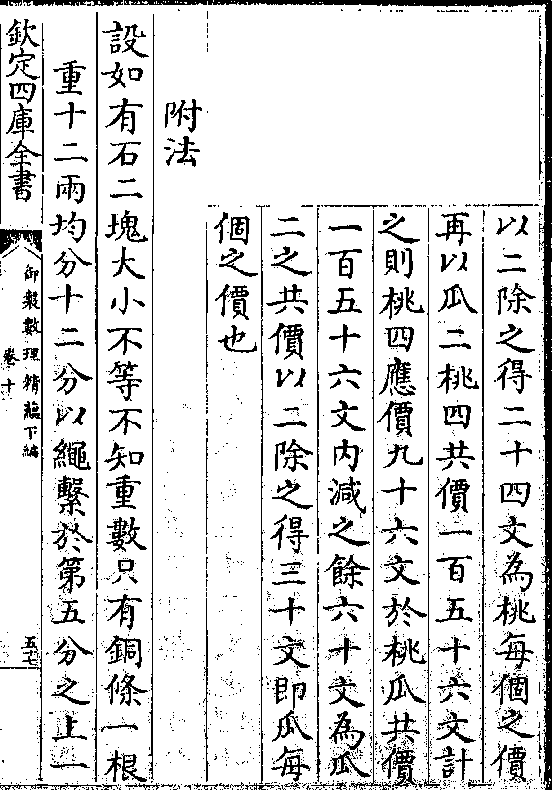 以二除之得二十四文為桃每個之價
再以瓜二桃四共價一百五十六文計
之則桃四應價九十六文於桃瓜共價
一百五十六文内減之餘六十文為瓜
二之共價以二除之得三十文即瓜每
個之價也
附法
設如有石二塊大小不等不知重數只有銅條一根
重十二兩均分十二分以繩繫於第五分之上一
欽定四庫全書
御製數理精蘊下編
卷十
五七